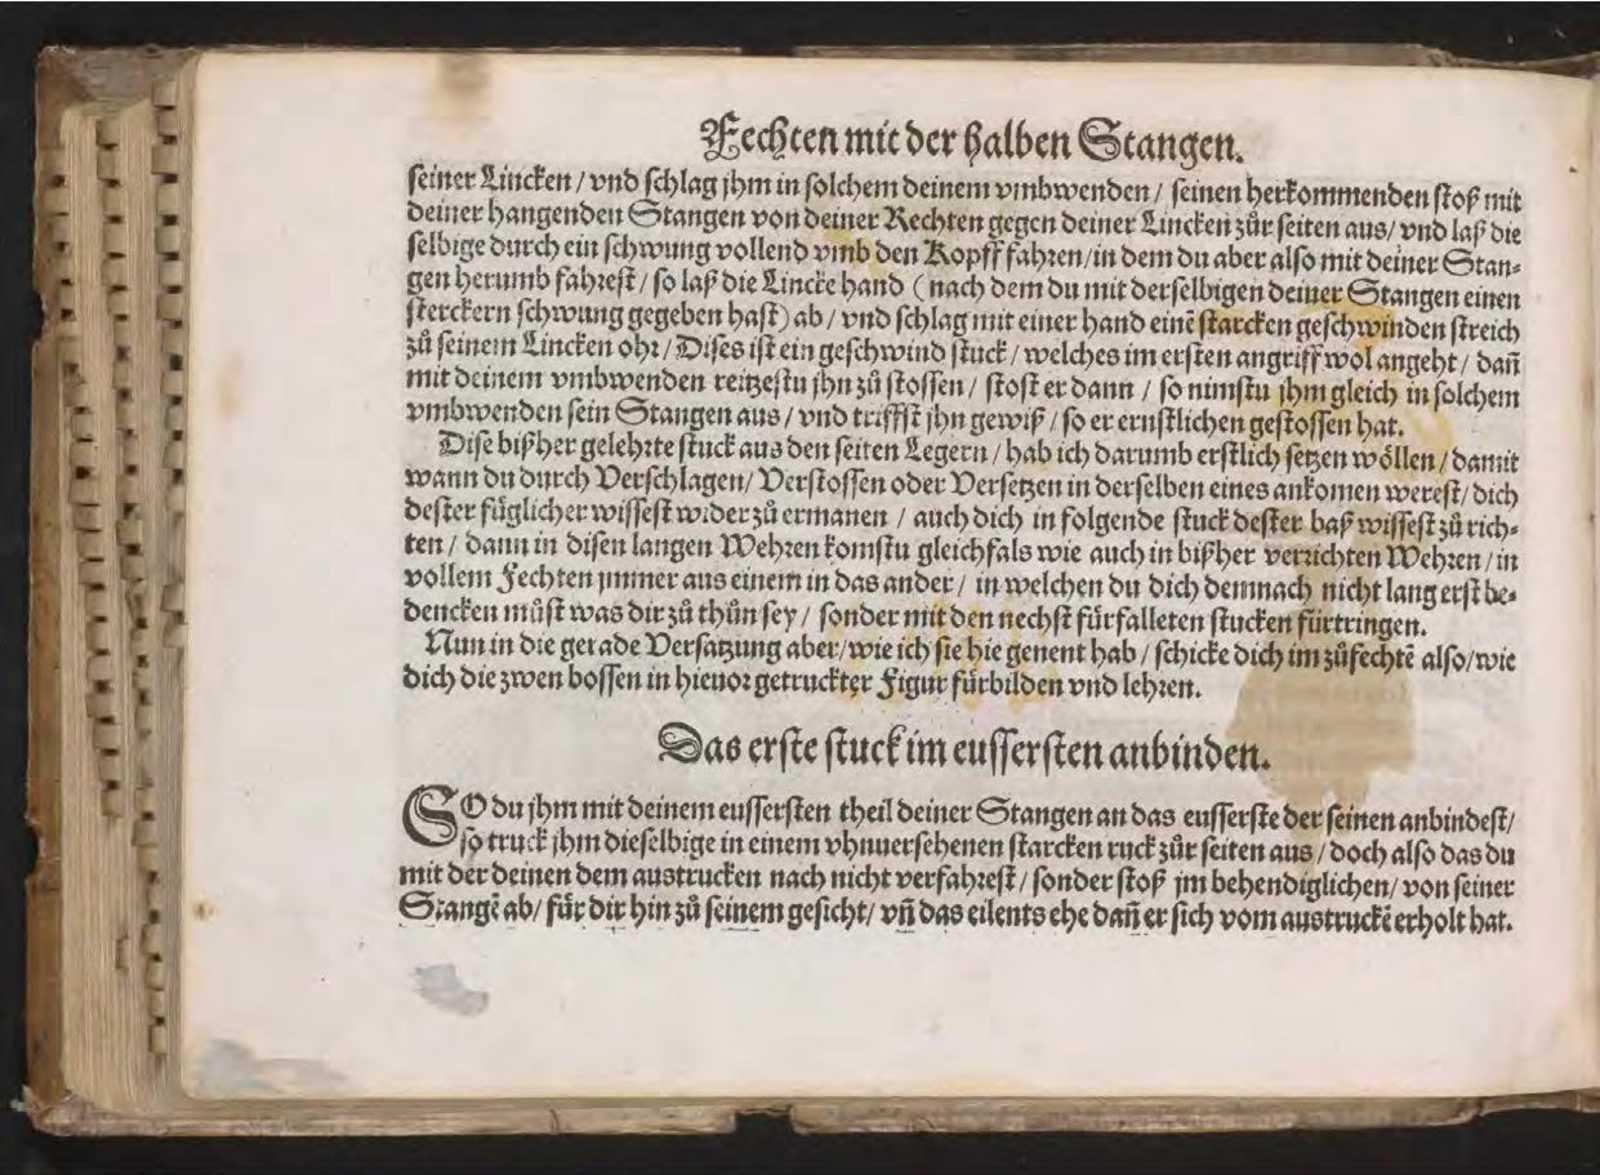 Fechten mit der halben Stangen.
seiner Lincken / vnd schlag jhm in solchem deinem vmbwenden / seinen herkommenden stoß mit
deiner hangenden Stangen von deiner Rechten gegen deiner Lincken zůr seiten aus / vnd laß die
selbige durch ein schwung vollend vmb den Kopff fahren / in dem du aber also mit deiner Stan⸗
gen herumb fahrest / so laß die Lincke hand (nach dem du mit derselbigen deiner Stangen einen
sterckern schwung gegeben hast) ab / vnd schlag mit einer hand einẽ starcken geschwinden streich
zů seinem Lincken ohr / Dises ist ein geschwind stuck / welches im ersten angriff wol angeht / dañ
mit deinem vmbwenden reitzestu jhn zů stossen / stost er dann / so nimstu jhm gleich in solchem
vmbwenden sein Stangen aus / vnd triffst jhn gewiß / so er ernstlichen gestossen hat.
Dise bißher gelehrte stuck aus den seiten Legern / hab ich darumb erstlich setzen wöllen / damit
wann du durch Verschlagen / Verstossen oder Versetzen in derselben eines ankomen werest / dich
dester füglicher wissest wider zů ermanen / auch dich in folgende stuck dester baß wissest zů rich⸗
ten / dann in disen langen Wehren komstu gleichfals wie auch in bißher verrichten Wehren / in
vollem Fechten jmmer aus einem in das ander / in welchen du dich demnach nicht lang erst be⸗
dencken můst was dir zů thůn sey / sonder mit den nechst fürfalleten stucken fürtringen.
Nun in die gerade Versatzung aber / wie ich sie hie genent hab / schicke dich im zůfechtẽ also / wie
dich die zwen bossen in hieuor getruckter Figur fürbilden vnd lehren.
Das erste stuck im eussersten anbinden.
SO du jhm mit deinem eussersten theil deiner Stangen an das eusserste der seinen anbindest /
so truck jhm dieselbige in einem vhnuersehenen starcken ruck zůr seiten aus / doch also das du
mit der deinen dem austrucken nach nicht verfahrest / sonder stoß jm behendiglichen / von seiner
Stangẽ ab / für dir hin zů seinem gesicht / vñ das eilents ehe dañ er sich vom austruckẽ erholt hat.